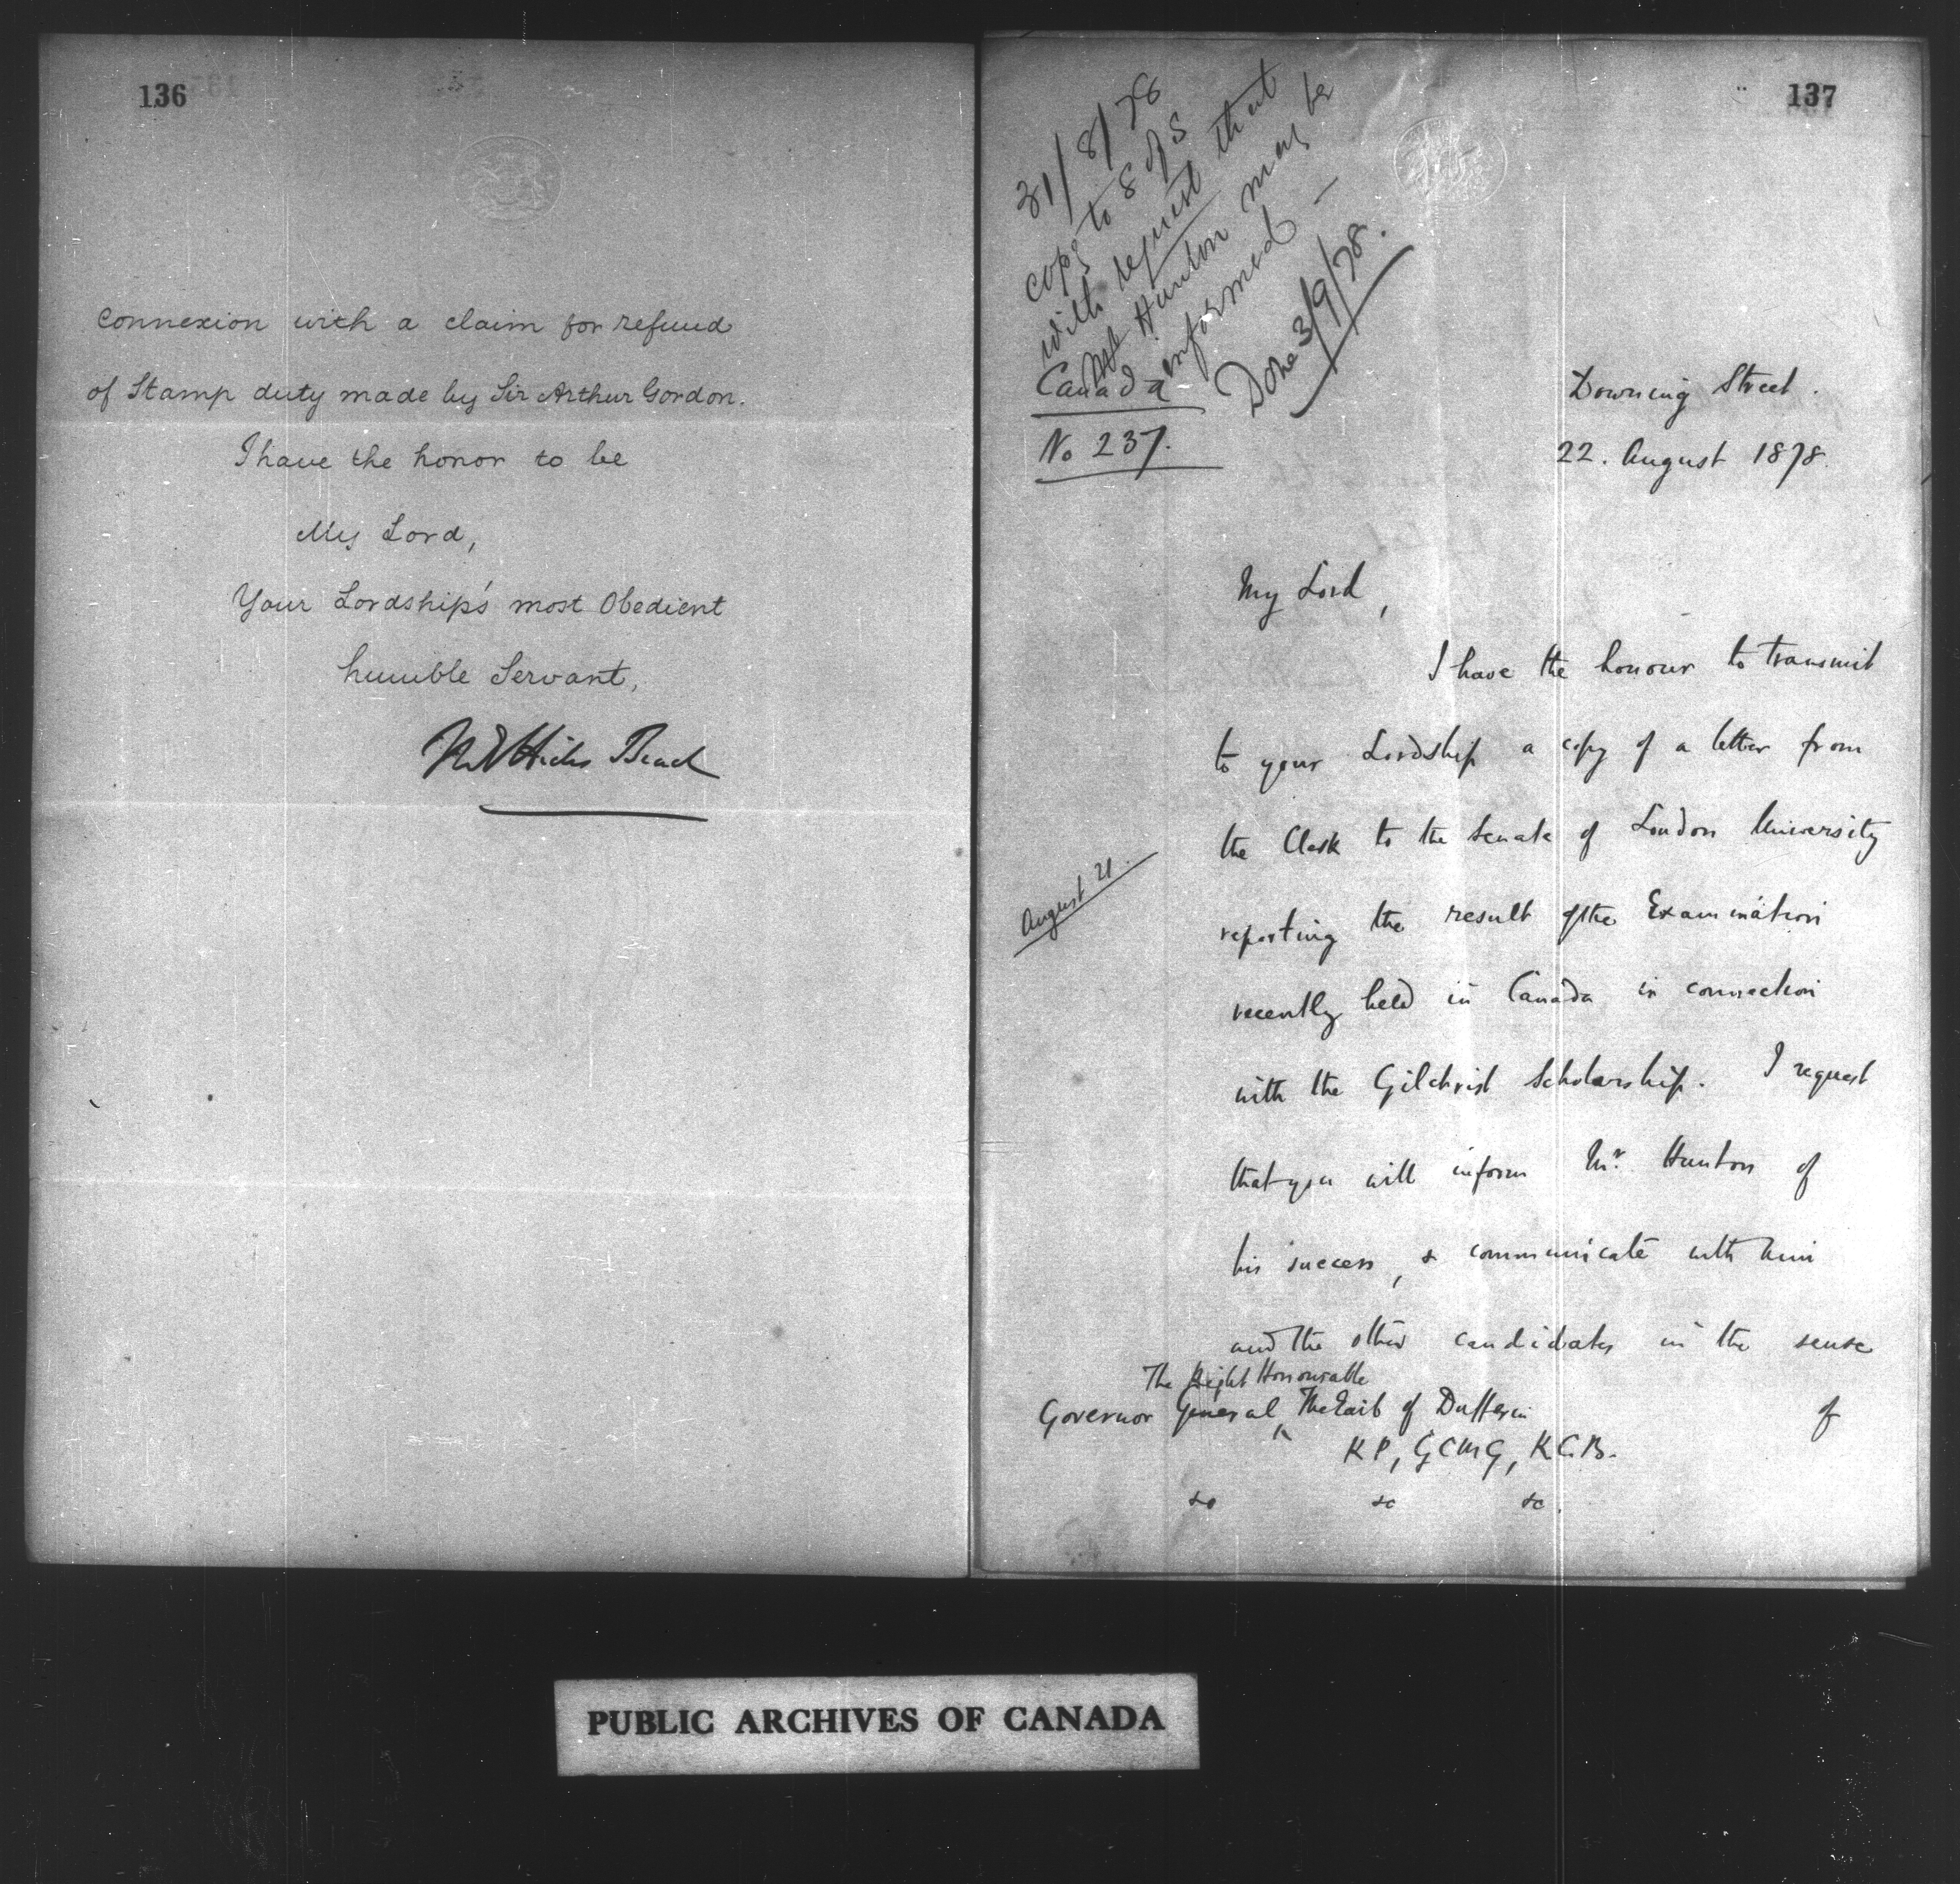 136
connexion with a claim for refund
of Stamp duty made by Sir Arthur Gordon.
I have the honor to be
My Lord,
Your Lordship's most Obedient
humble Servant,
M E Hicks Beach
137
31/8/78
copy to S of S
with request that
Mr Hunton may be
informed —
Done 3/9/78.
Canada
No 237.
Downing Street.
22. August 1878.
My Lord,
I have the honour to transmit
to your Lordship a copy of a letter from
the Clerk to the Senate of London University
August 21.
reporting the result of the Examination
recently held in Canada in connection
with the Gilchrist Scholarship. I request
that you will inform Mr. Hunton of
his success, & communicate with him
and the other candidates in the sense
of
The Right Honourable
Governor General, The Earl of Dufferin
KP, GCMG, KCB.
&c &c &c.
PUBLIC ARCHIVES OF CANADA